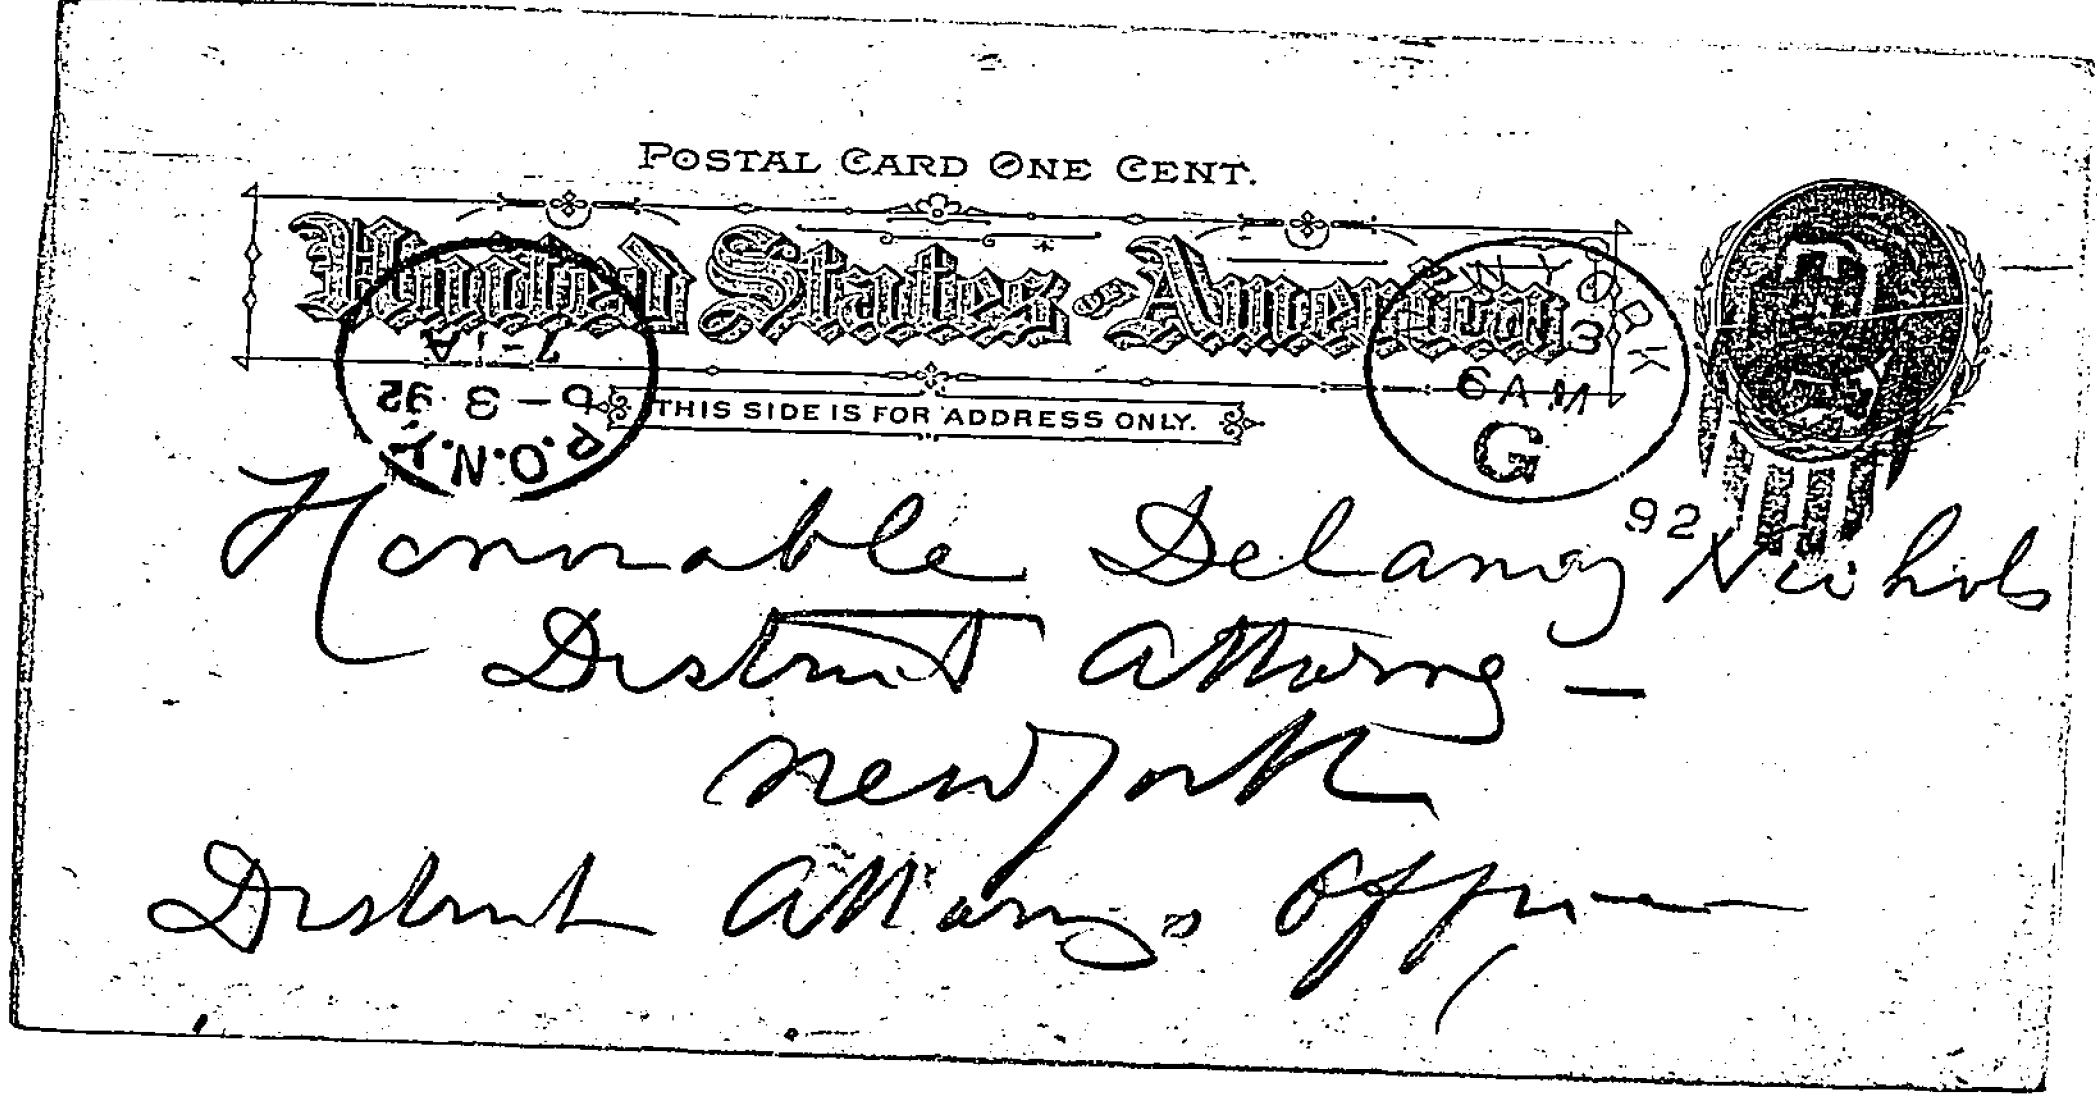 POSTAL CARD ONE CENT.
United States OF America
THIS SIDE IS FOR ADDRESS ONLY.
P.O.N.Y.
6-3 92
7-1A
N.Y. YORK
3
6 AM
G
92
Honorable Delancy Nichols
District Attorney -
New York
District Attorneys Office